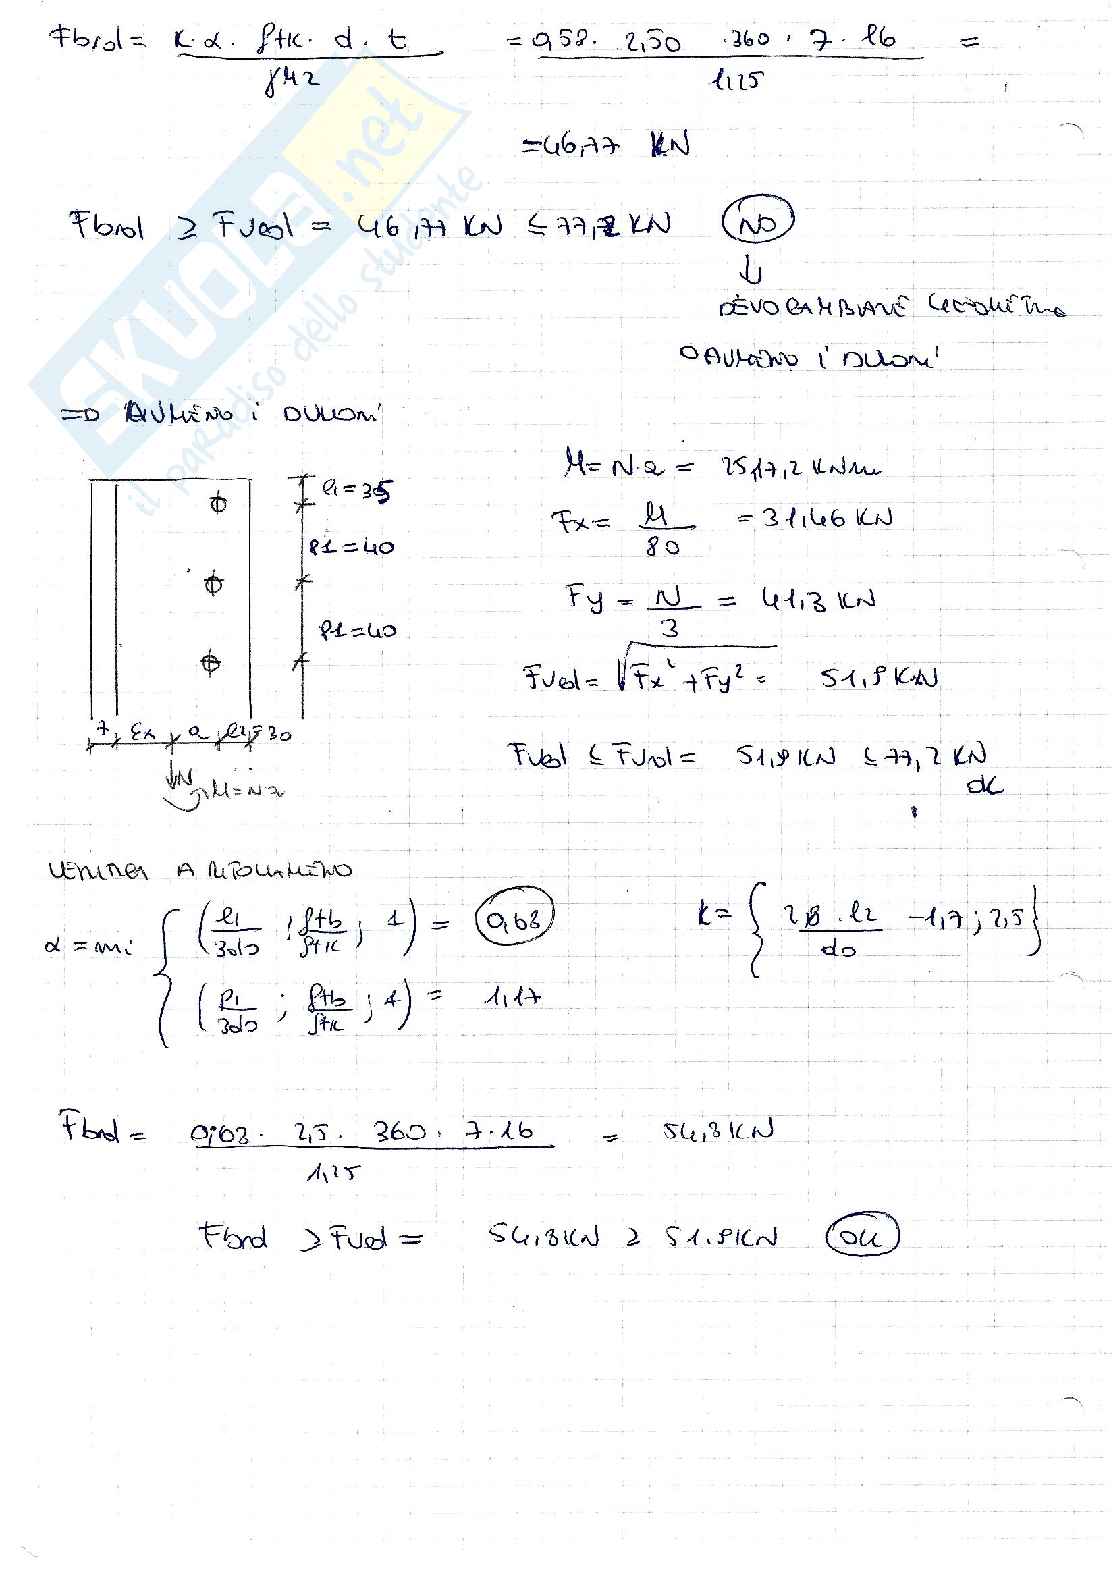 Fbrd = k·α·ftk·d·t / γM2 = 0,58·2,50·360·7·16 / 1,25 =
= 46,77 KN
Fbrd ≥ Fved = 46,77 KN ≤ 77,2 KN NO
↓
DEVO CAMBIARE GEOMETRIA
O AUMENTO I BULLONI
=D AUMENTO i BULLONI
M = N·a = 2517,2 KNmm
e1 = 35
Fx = M / 80 = 31,46 KN
P1 = 40
Fy = N / 3 = 41,3 KN
P1 = 40
Fved = √Fx² + Fy² = 51,9 KN
7 a e2 = 30
Fved ≤ Fvrd = 51,9 KN ≤ 77,2 KN
ok
N M = Na
VERIFICA A RIFOLLAMENTO
α = min { (e1/3do ; ftb/ftk ; 1) = 0,63
(P1/3do ; ftb/ftk ; 1) = 1,17
k = { 2,8·e2/do - 1,7 ; 2,5 }
Fbrd = 0,63·2,5·360·7·16 / 1,25 = 54,3 KN
Fbrd ≥ Fved = 54,3 KN ≥ 51,9 KN OK
SKUOLA.net
il paradiso dello studente